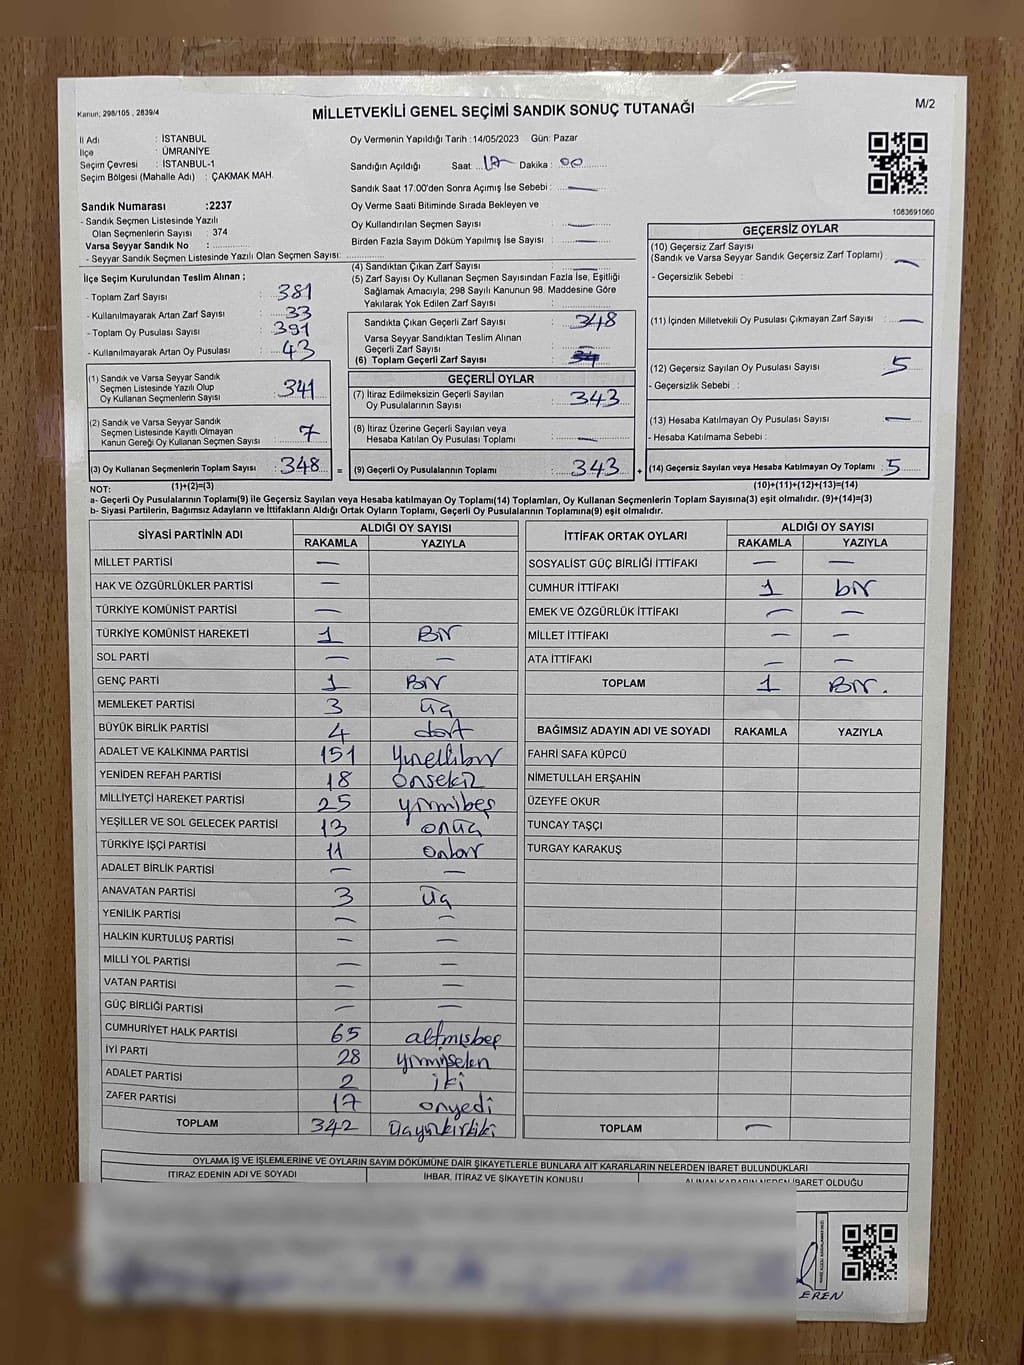 Kanun; 298/105 , 2839/4
MİLLETVEKİLİ GENEL SEÇİMİ SANDIK SONUÇ TUTANAĞI
M/2
İl Adı : İSTANBUL
İlçe : ÜMRANİYE
Seçim Çevresi : İSTANBUL-1
Seçim Bölgesi (Mahalle Adı) : ÇAKMAK MAH.
Oy Vermenin Yapıldığı Tarih :14/05/2023 Gün: Pazar
Sandığın Açıldığı Saat: 17 Dakika : 00
Sandık Saat 17.00'den Sonra Açımış İse Sebebi : —
Oy Verme Saati Bitiminde Sırada Bekleyen ve
Oy Kullandırılan Seçmen Sayısı : —
Birden Fazla Sayım Döküm Yapılmış İse Sayısı : —
1083691060
Sandık Numarası :2237
- Sandık Seçmen Listesinde Yazılı
Olan Seçmenlerin Sayısı : 374
Varsa Seyyar Sandık No :
- Seyyar Sandık Seçmen Listesinde Yazılı Olan Seçmen Sayısı:
İlçe Seçim Kurulundan Teslim Alınan ;
- Toplam Zarf Sayısı : 381
- Kullanılmayarak Artan Zarf Sayısı : 33
- Toplam Oy Pusulası Sayısı : 391
- Kullanılmayarak Artan Oy Pusulası : 43
(1) Sandık ve Varsa Seyyar Sandık
Seçmen Listesinde Yazılı Olup
Oy Kullanan Seçmenlerin Sayısı : 341
(2) Sandık ve Varsa Seyyar Sandık
Seçmen Listesinde Kayıtlı Olmayan
Kanun Gereği Oy Kullanan Seçmen Sayısı : 7
(3) Oy Kullanan Seçmenlerin Toplam Sayısı : 348 =
(4) Sandıktan Çıkan Zarf Sayısı : —
(5) Zarf Sayısı Oy Kullanan Seçmen Sayısından Fazla İse, Eşitliği
Sağlamak Amacıyla; 298 Sayılı Kanunun 98. Maddesine Göre
Yakılarak Yok Edilen Zarf Sayısı :
Sandıkta Çıkan Geçerli Zarf Sayısı : 348
Varsa Seyyar Sandıktan Teslim Alınan
Geçerli Zarf Sayısı :
(6) Toplam Geçerli Zarf Sayısı :
GEÇERLİ OYLAR
(7) İtiraz Edilmeksizin Geçerli Sayılan
Oy Pusulalarının Sayısı : 343
(8) İtiraz Üzerine Geçerli Sayılan veya
Hesaba Katılan Oy Pusulası Toplamı : —
(9) Geçerli Oy Pusulalarının Toplamı : 343 +
GEÇERSİZ OYLAR
(10) Geçersiz Zarf Sayısı
(Sandık ve Varsa Seyyar Sandık Geçersiz Zarf Toplamı) : —
- Geçersizlik Sebebi :
(11) İçinden Milletvekili Oy Pusulası Çıkmayan Zarf Sayısı : —
(12) Geçersiz Sayılan Oy Pusulası Sayısı : 5
- Geçersizlik Sebebi :
(13) Hesaba Katılmayan Oy Pusulası Sayısı : —
- Hesaba Katılmama Sebebi :
(14) Geçersiz Sayılan veya Hesaba Katılmayan Oy Toplamı : 5
NOT: (1)+(2)=(3) (10)+(11)+(12)+(13)=(14)
a- Geçerli Oy Pusulalarının Toplamı(9) ile Geçersiz Sayılan veya Hesaba katılmayan Oy Toplamı(14) Toplamları, Oy Kullanan Seçmenlerin Toplam Sayısına(3) eşit olmalıdır. (9)+(14)=(3)
b- Siyasi Partilerin, Bağımsız Adayların ve İttifakların Aldığı Ortak Oyların Toplamı, Geçerli Oy Pusulalarının Toplamına(9) eşit olmalıdır.
SİYASİ PARTİNİN ADI ALDIĞI OY SAYISI
RAKAMLA YAZIYLA
MİLLET PARTİSİ —
HAK VE ÖZGÜRLÜKLER PARTİSİ —
TÜRKİYE KOMÜNİST PARTİSİ —
TÜRKİYE KOMÜNİST HAREKETİ 1 Bir
SOL PARTİ — —
GENÇ PARTİ 1 Bir
MEMLEKET PARTİSİ 3 üç
BÜYÜK BİRLİK PARTİSİ 4 dört
ADALET VE KALKINMA PARTİSİ 151 yüzellibir
YENİDEN REFAH PARTİSİ 18 onsekiz
MİLLİYETÇİ HAREKET PARTİSİ 25 yirmibeş
YEŞİLLER VE SOL GELECEK PARTİSİ 13 onüç
TÜRKİYE İŞÇİ PARTİSİ 11 onbir
ADALET BİRLİK PARTİSİ — —
ANAVATAN PARTİSİ 3 üç
YENİLİK PARTİSİ — —
HALKIN KURTULUŞ PARTİSİ — —
MİLLİ YOL PARTİSİ — —
VATAN PARTİSİ — —
GÜÇ BİRLİĞİ PARTİSİ — —
CUMHURİYET HALK PARTİSİ 65 altmışbeş
İYİ PARTİ 28 yirmisekiz
ADALET PARTİSİ 2 iki
ZAFER PARTİSİ 17 onyedi
TOPLAM 342 üçyüzkırkiki
İTTİFAK ORTAK OYLARI ALDIĞI OY SAYISI
RAKAMLA YAZIYLA
SOSYALİST GÜÇ BİRLİĞİ İTTİFAKI — —
CUMHUR İTTİFAKI 1 bir
EMEK VE ÖZGÜRLÜK İTTİFAKI — —
MİLLET İTTİFAKI — —
ATA İTTİFAKI — —
TOPLAM 1 Bir.
BAĞIMSIZ ADAYIN ADI VE SOYADI RAKAMLA YAZIYLA
FAHRİ SAFA KÜPCÜ
NİMETULLAH ERŞAHİN
ÜZEYFE OKUR
TUNCAY TAŞÇI
TURGAY KARAKUŞ
TOPLAM —
OYLAMA İŞ VE İŞLEMLERİNE VE OYLARIN SAYIM DÖKÜMÜNE DAİR ŞİKAYETLERLE BUNLARA AİT KARARLARIN NELERDEN İBARET BULUNDUKLARI
İTİRAZ EDENİN ADI VE SOYADI İHBAR, İTİRAZ VE ŞİKAYETİN KONUSU ALINAN KARARIN NEDEN İBARET OLDUĞU
EREN